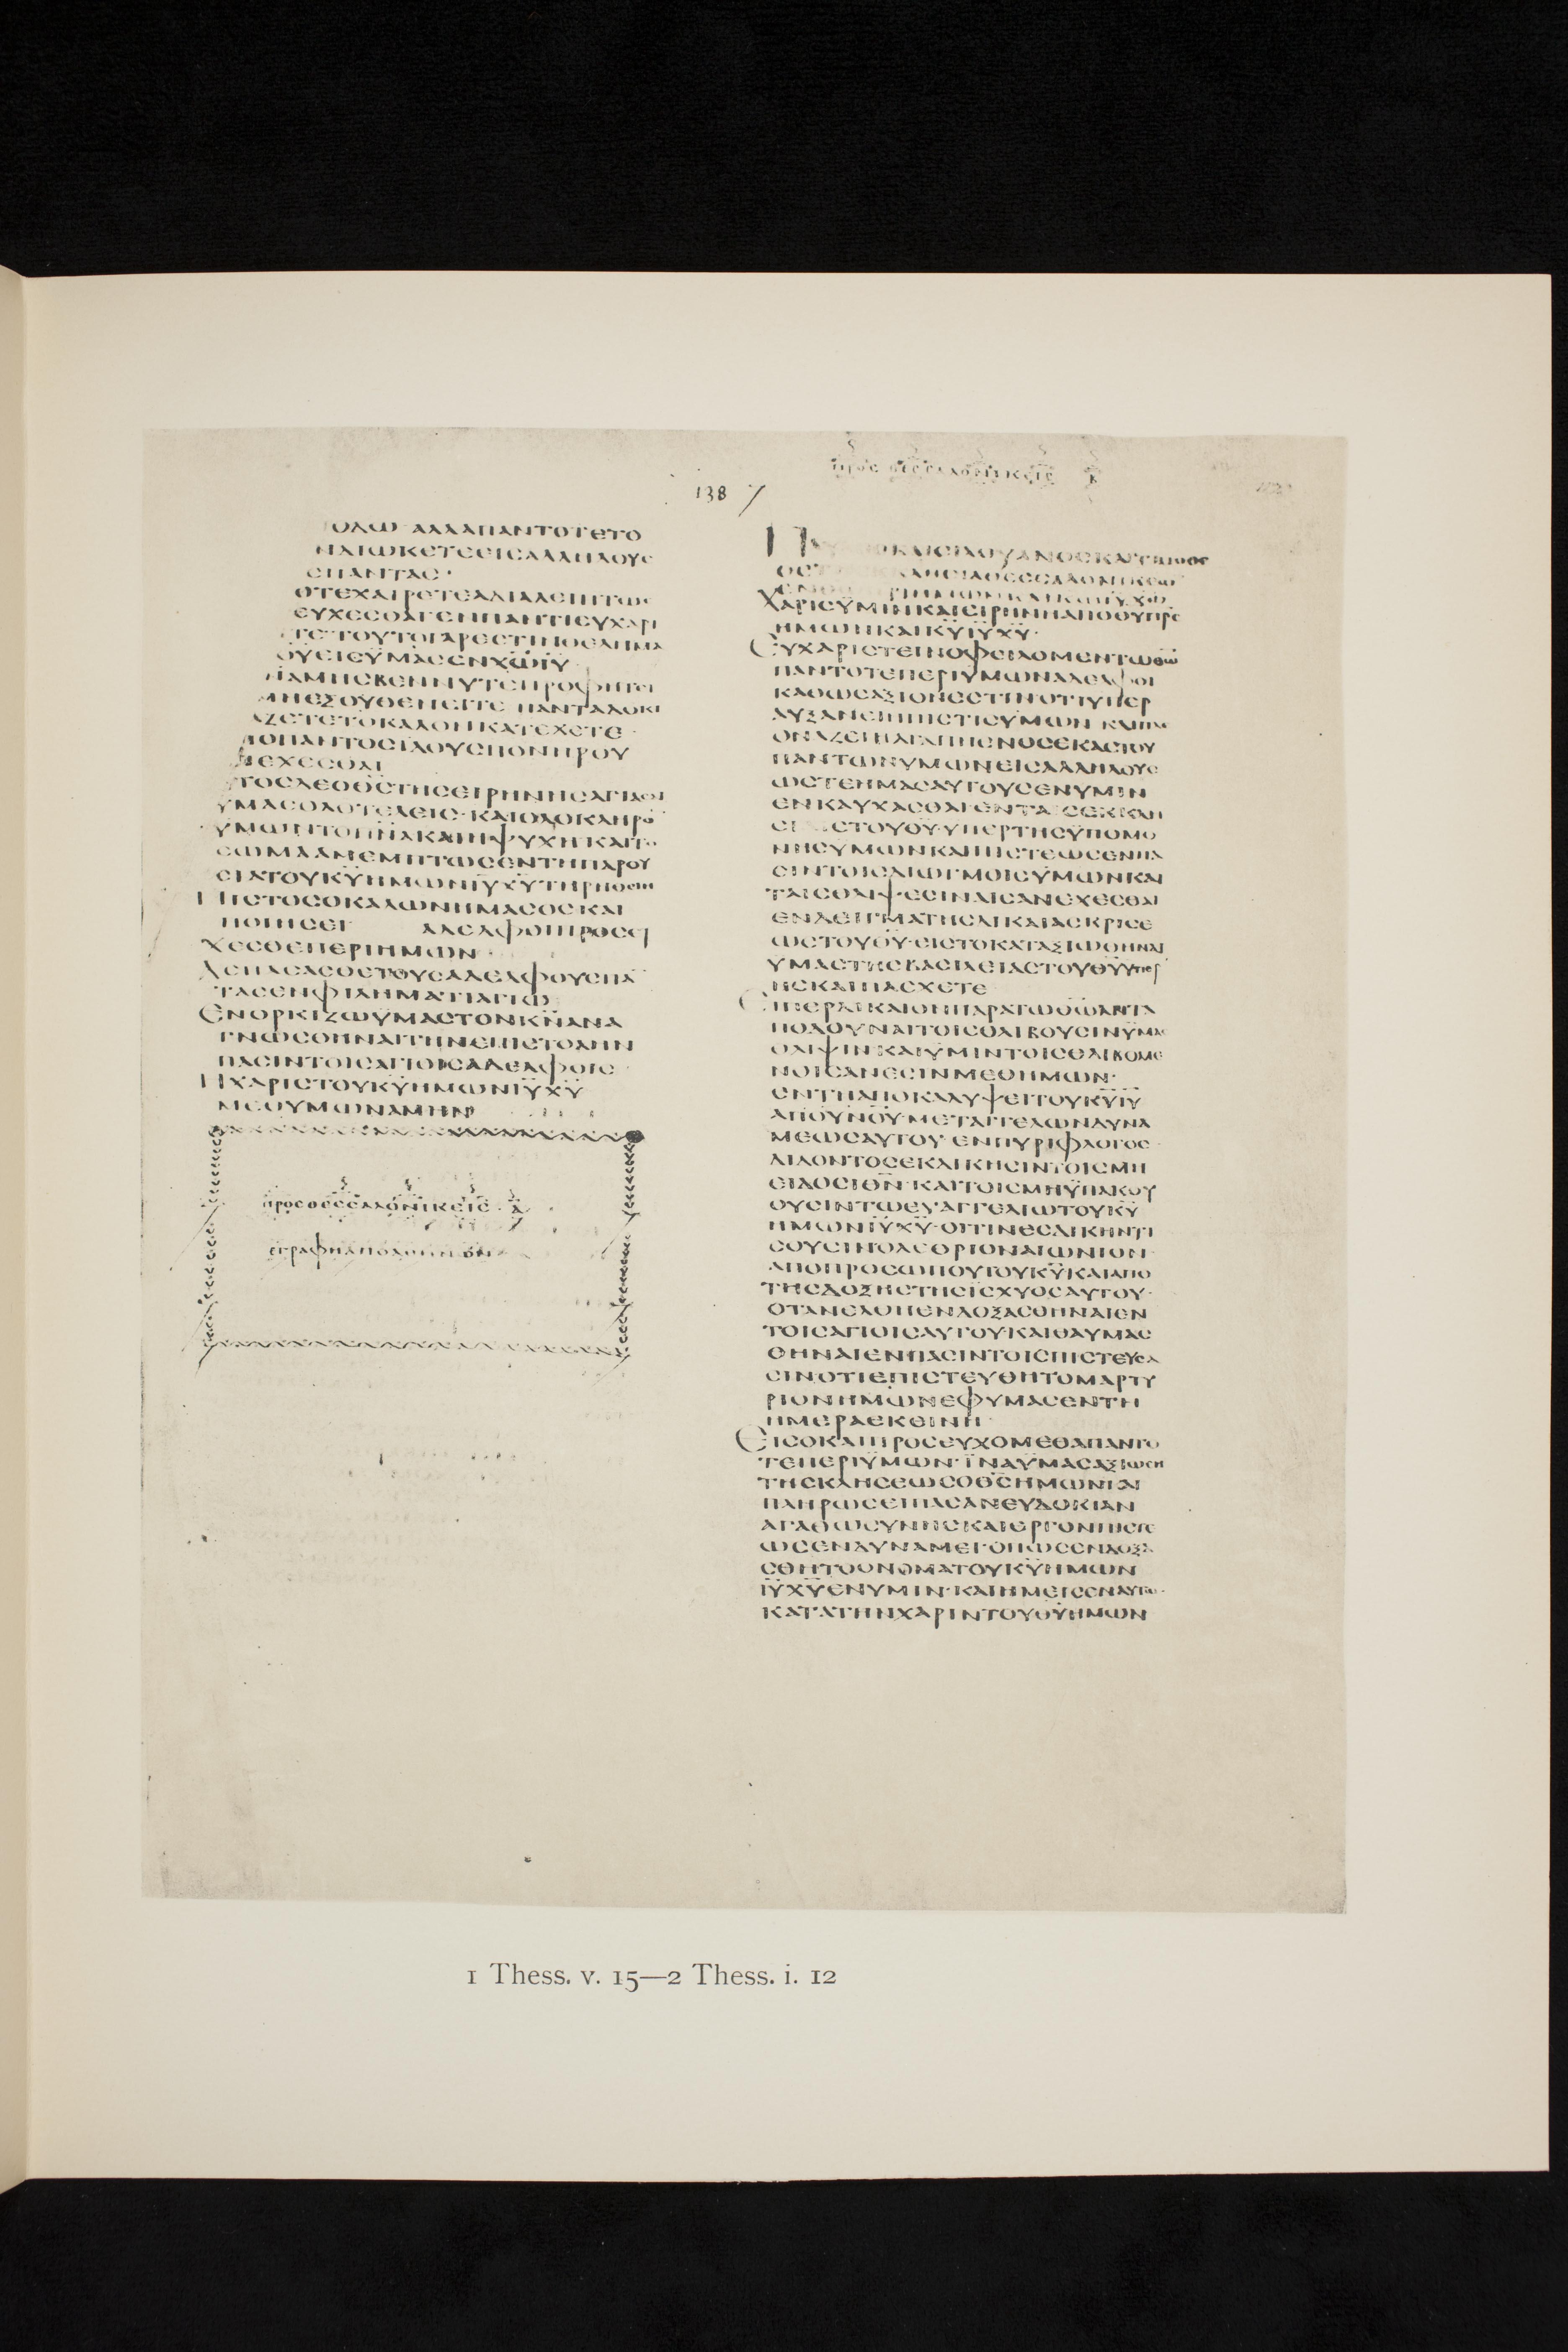 προς θεσσαλονικεις
138
αλλαπαντοτετο
διωκετεεισαλληλουσ
ειπαντας·
ευχεσθαι εν παντιευχαρι
τετουτογαρεστινθελημα
θυεισυμασενχωιυ
το πνα μησβεννυτεπροφητει
μηεξουθενειτε πανταδοκι
αζετετοκαλονκατεχετε
αποπαντοσειδουσπονηρου
απεχεσθαι
υτοσδεοθστησειρηνησαγιασαι
υμασολοτελεισ·καιολοκληρο
υμωντοπνακαιηψυχηκαιτο
σωμααμεμπτωσεντηπαρου
σιατουκυημωνιυχυτηρηθειη
πιστοσοκαλωνημασοσκαι
ποιησει αδελφοιπροσευ
χεσθεπεριημων·
ασπασασθετουσαδελφουσπα
τασενφιληματιαγιω
ενορκιζωυμαστονκναανα
γνωσθηναιτηνεπιστολην
πασιντοισαγιοισαδελφοισ·
ηχαριστουκυημωνιυχυ
μεθυμωναμην
προσθεσσαλονικεισ·α
εγραφηαποαθηνων
καισιλουανοσκαιτιμοθε
οσ θεσσαλονικεω
χαρισυμινκαιειρηνηαποθυπρσ
ημωνκαικυιυχυ·
ευχαριστεινοφειλομεντωθω
παντοτεπεριυμωναδελφοι
καθωσαξιονεστινοτιυπερ
αυξανειηπιστισυμων καιπλε
οναζειηαγαπηενοσεκαστου
παντωνυμωνεισαλληλουσ
ωστεημασαυτουσενυμιν
ενκαυχασθαιενταισεκκλη
σι τουθυ·υπερτησυπομο
νησυμωνκαιπιστεωσενπα
σιντοισδιωγμοισυμωνκαι
ταισθλιψεσιναισανεχεσθαι
ενδειγματησδικαιασκρισε
ωστουθυ·εισ​τοκαταξιωθηναι
υμαστησβασιλειαστουθυυπερ
ησκαιπασχετε
ειπερδικαιονπαραтωθωαντα
ποδουναιτοισθλιβουσινυμασ
θλιψινκαιυμιντοισθλιβομε
νοισανεσινμεθημων·
εντηαποκαλυψειτουκυιυ
απουνου·μεταγγελωνδυνα
μεωσαυτου·ενπυριφλογοσ·
διδοντοσεκδικησιντοισμη
ειδοσιθν·καιτοισμηυπακου
ουσιντωευαγγελιωτουκυ
ημωνιυχυ·οιτινεσδικηντι
σουσινολεθριοναιωνιον·
αποπροσωπουτουκυκαιαπο
τησδοξηστησισχυοσαυτου·
οτανελθηενδοξασθηναιεν
τοισαγιοισαυτου·καιθαυμασ
θηναιενπασιντοισπιστευσα
σινοτιεπιστευθητομαρτυ
ριονημωνεφυμασεντη
ημεραεκεινη·
εισοκαιπροσευχομεθαπαντο
τεπεριυμων·ιναυμασαξιωση
τησκλησεωσοθσημωνκαι
πληρωσειπασανευδοκιαν
αγαθωσυνησκαιεργονπιστε
ωσενδυναμειοπωσενδοξα
σθητοονοματουκυημων
ιυχυενυμιν·καιημεισεναυτω·
κατατηνχαριντουθυημων
1 Thess. v. 15—2 Thess. i. 12